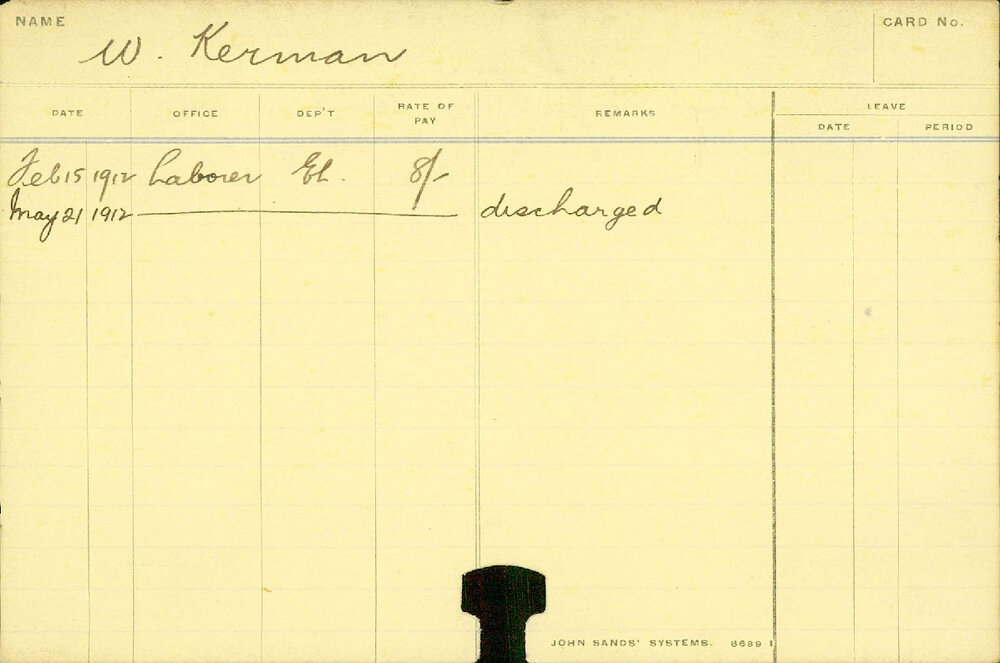 NAME W. Kerman CARD No.
DATE OFFICE DEP'T RATE OF PAY REMARKS LEAVE
DATE PERIOD
Feb 15 1912 Laborer El. 8/-
May 21 1912 discharged
JOHN SANDS' SYSTEMS. 8689